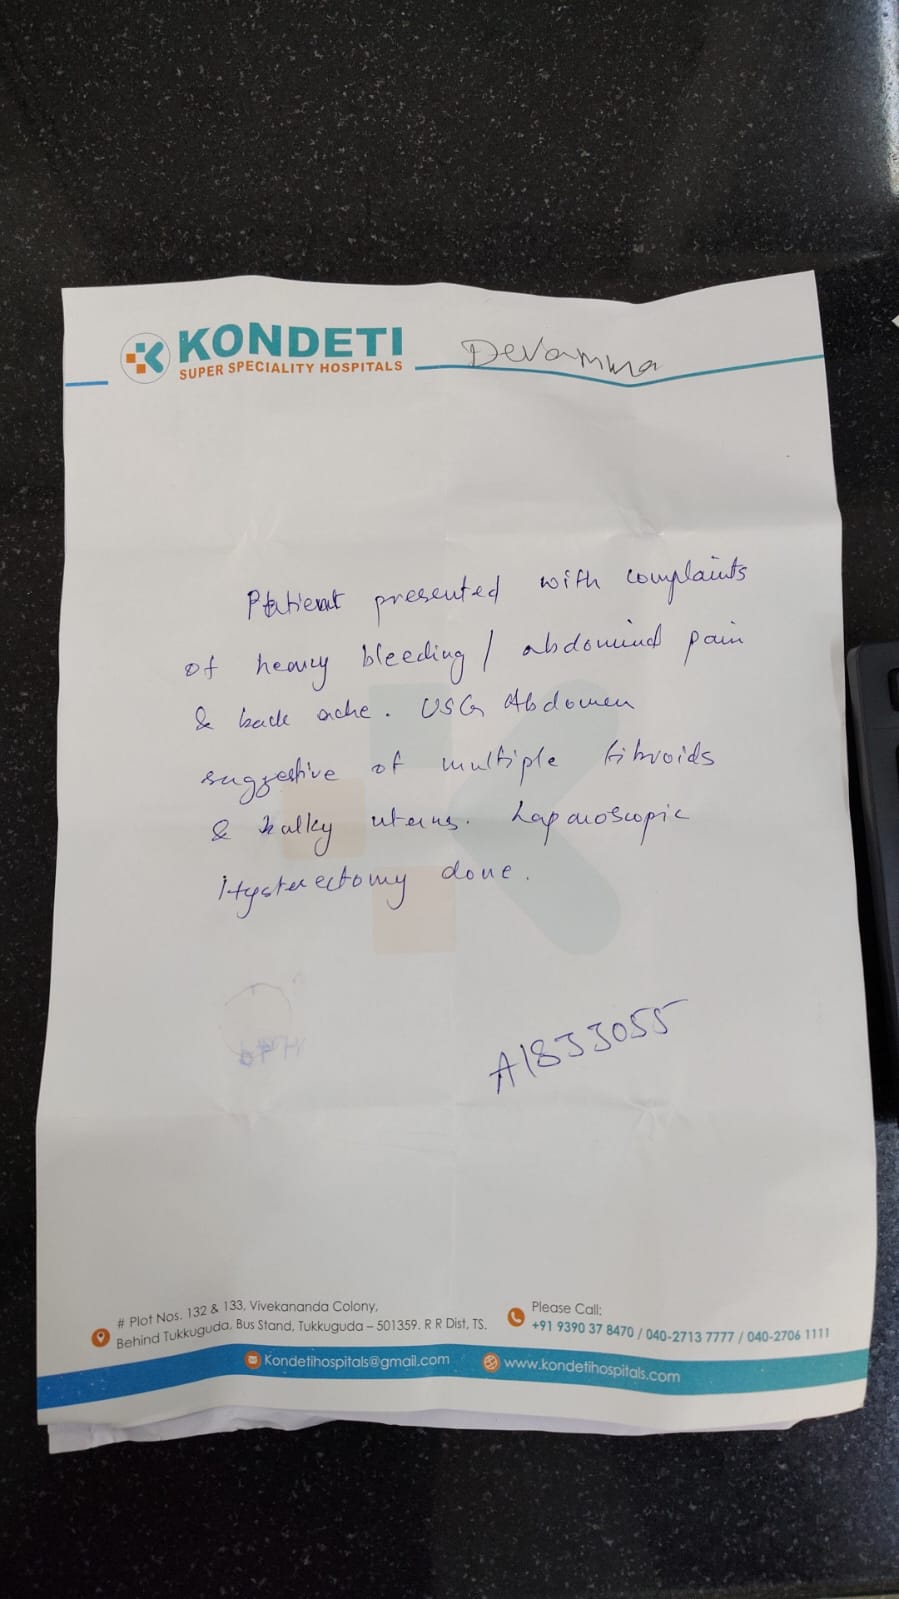 KONDETI
SUPER SPECIALITY HOSPITALS
Devamma
Patient presented with complaints
of heavy bleeding / abdominal pain
& back ache. USG Abdomen
suggestive of multiple fibroids
& bulky uterus. Laparoscopic
Hysterectomy done.
A1833055
# Plot Nos. 132 & 133, Vivekananda Colony,
Behind Tukkuguda, Bus Stand, Tukkuguda – 501359. R R Dist, TS.
Please Call:
+91 9390 37 8470 / 040-2713 7777 / 040-2706 1111
Kondetihospitals@gmail.com
www.kondetihospitals.com